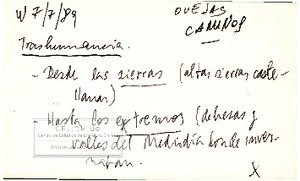 W 7/7/89
OVEJAS
CAMINOS
Trashumancia.
- Desde las sierras (altas sierras caste-
llanas)
- Hasta los extremos (dehesas y
valles del Mediodía donde inver-
naban.
X